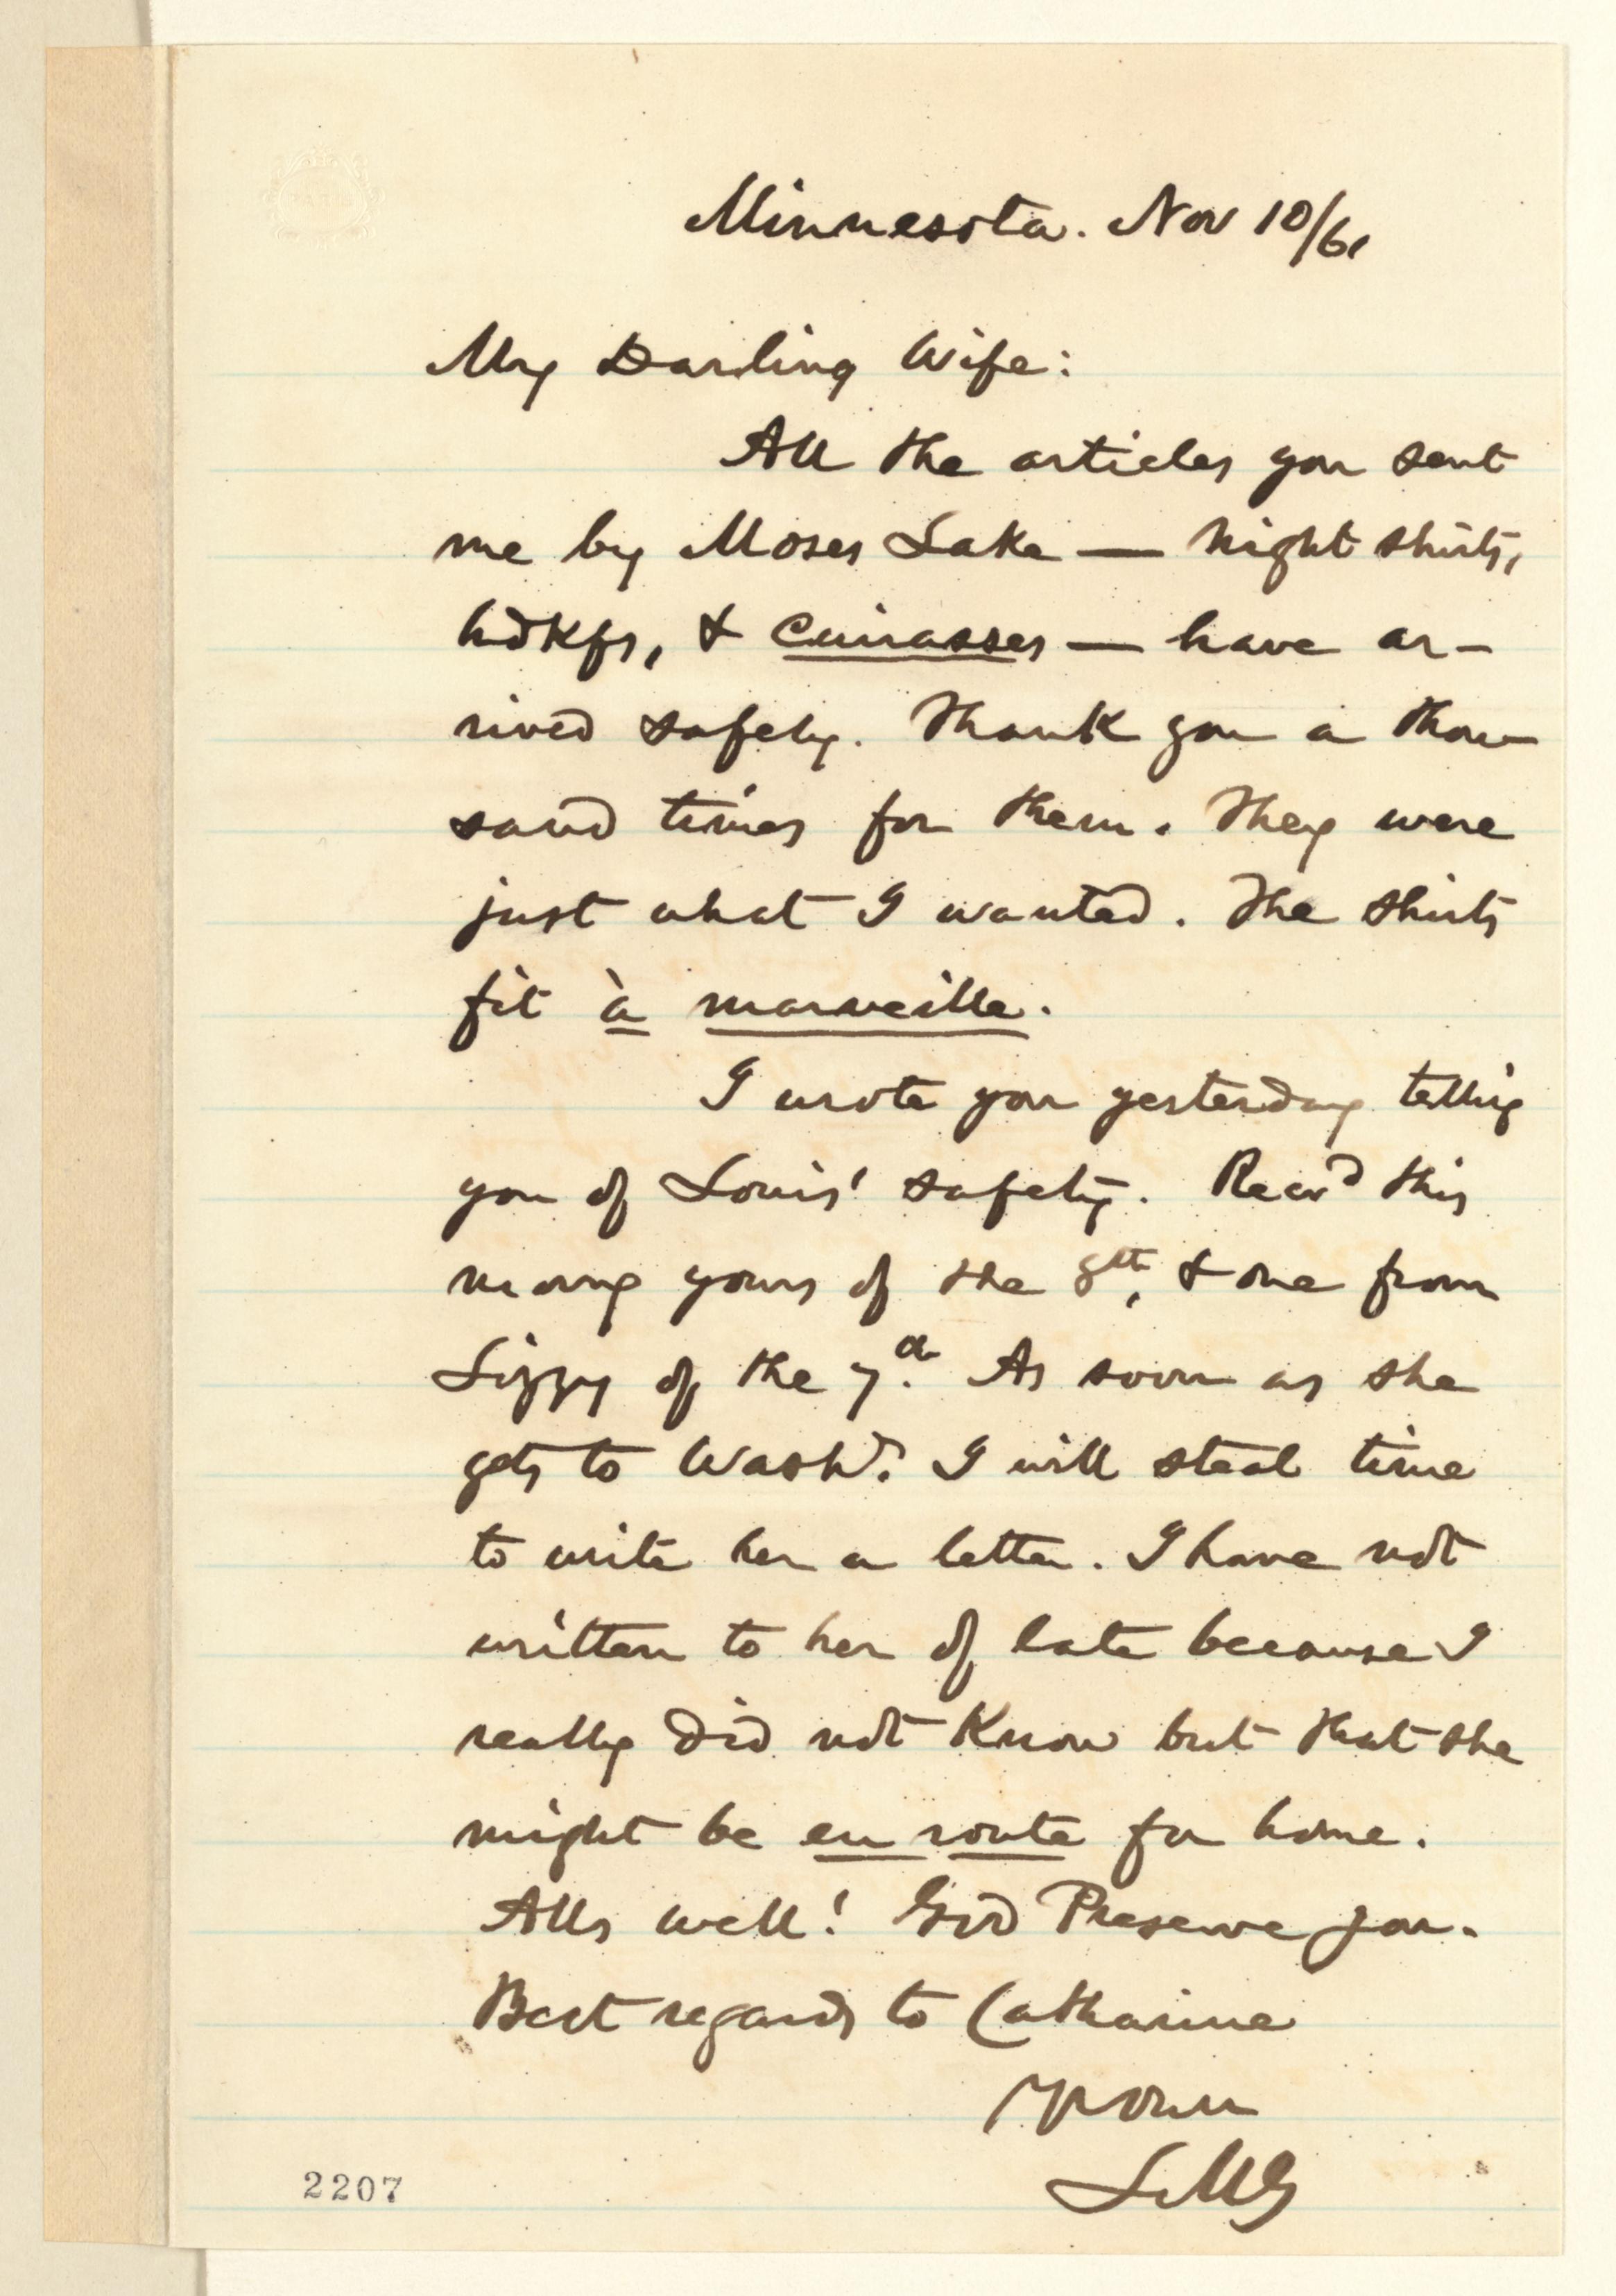 Minnesota. Nov 10/61
My Darling Wife:
All the articles you sent
me by Moses Lake — night shirts,
hdkfs, & cuirasses — have ar-
rived safely. Thank you a thou-
sand times for them. They were
just what I wanted. The shirts
fit à marveille.
I wrote you yesterday telling
you of Louis' safety. Recvd this
morng yours of the 8th, & one from
Lizzy of the 7th. As soon as she
gets to Washn. I will steal time
to write her a letter. I have not
written to her of late because I
really did not know but that she
might be en route for home.
Alls well! God Preserve you.
Best regards to Catharine
Yr own
LMG
2207